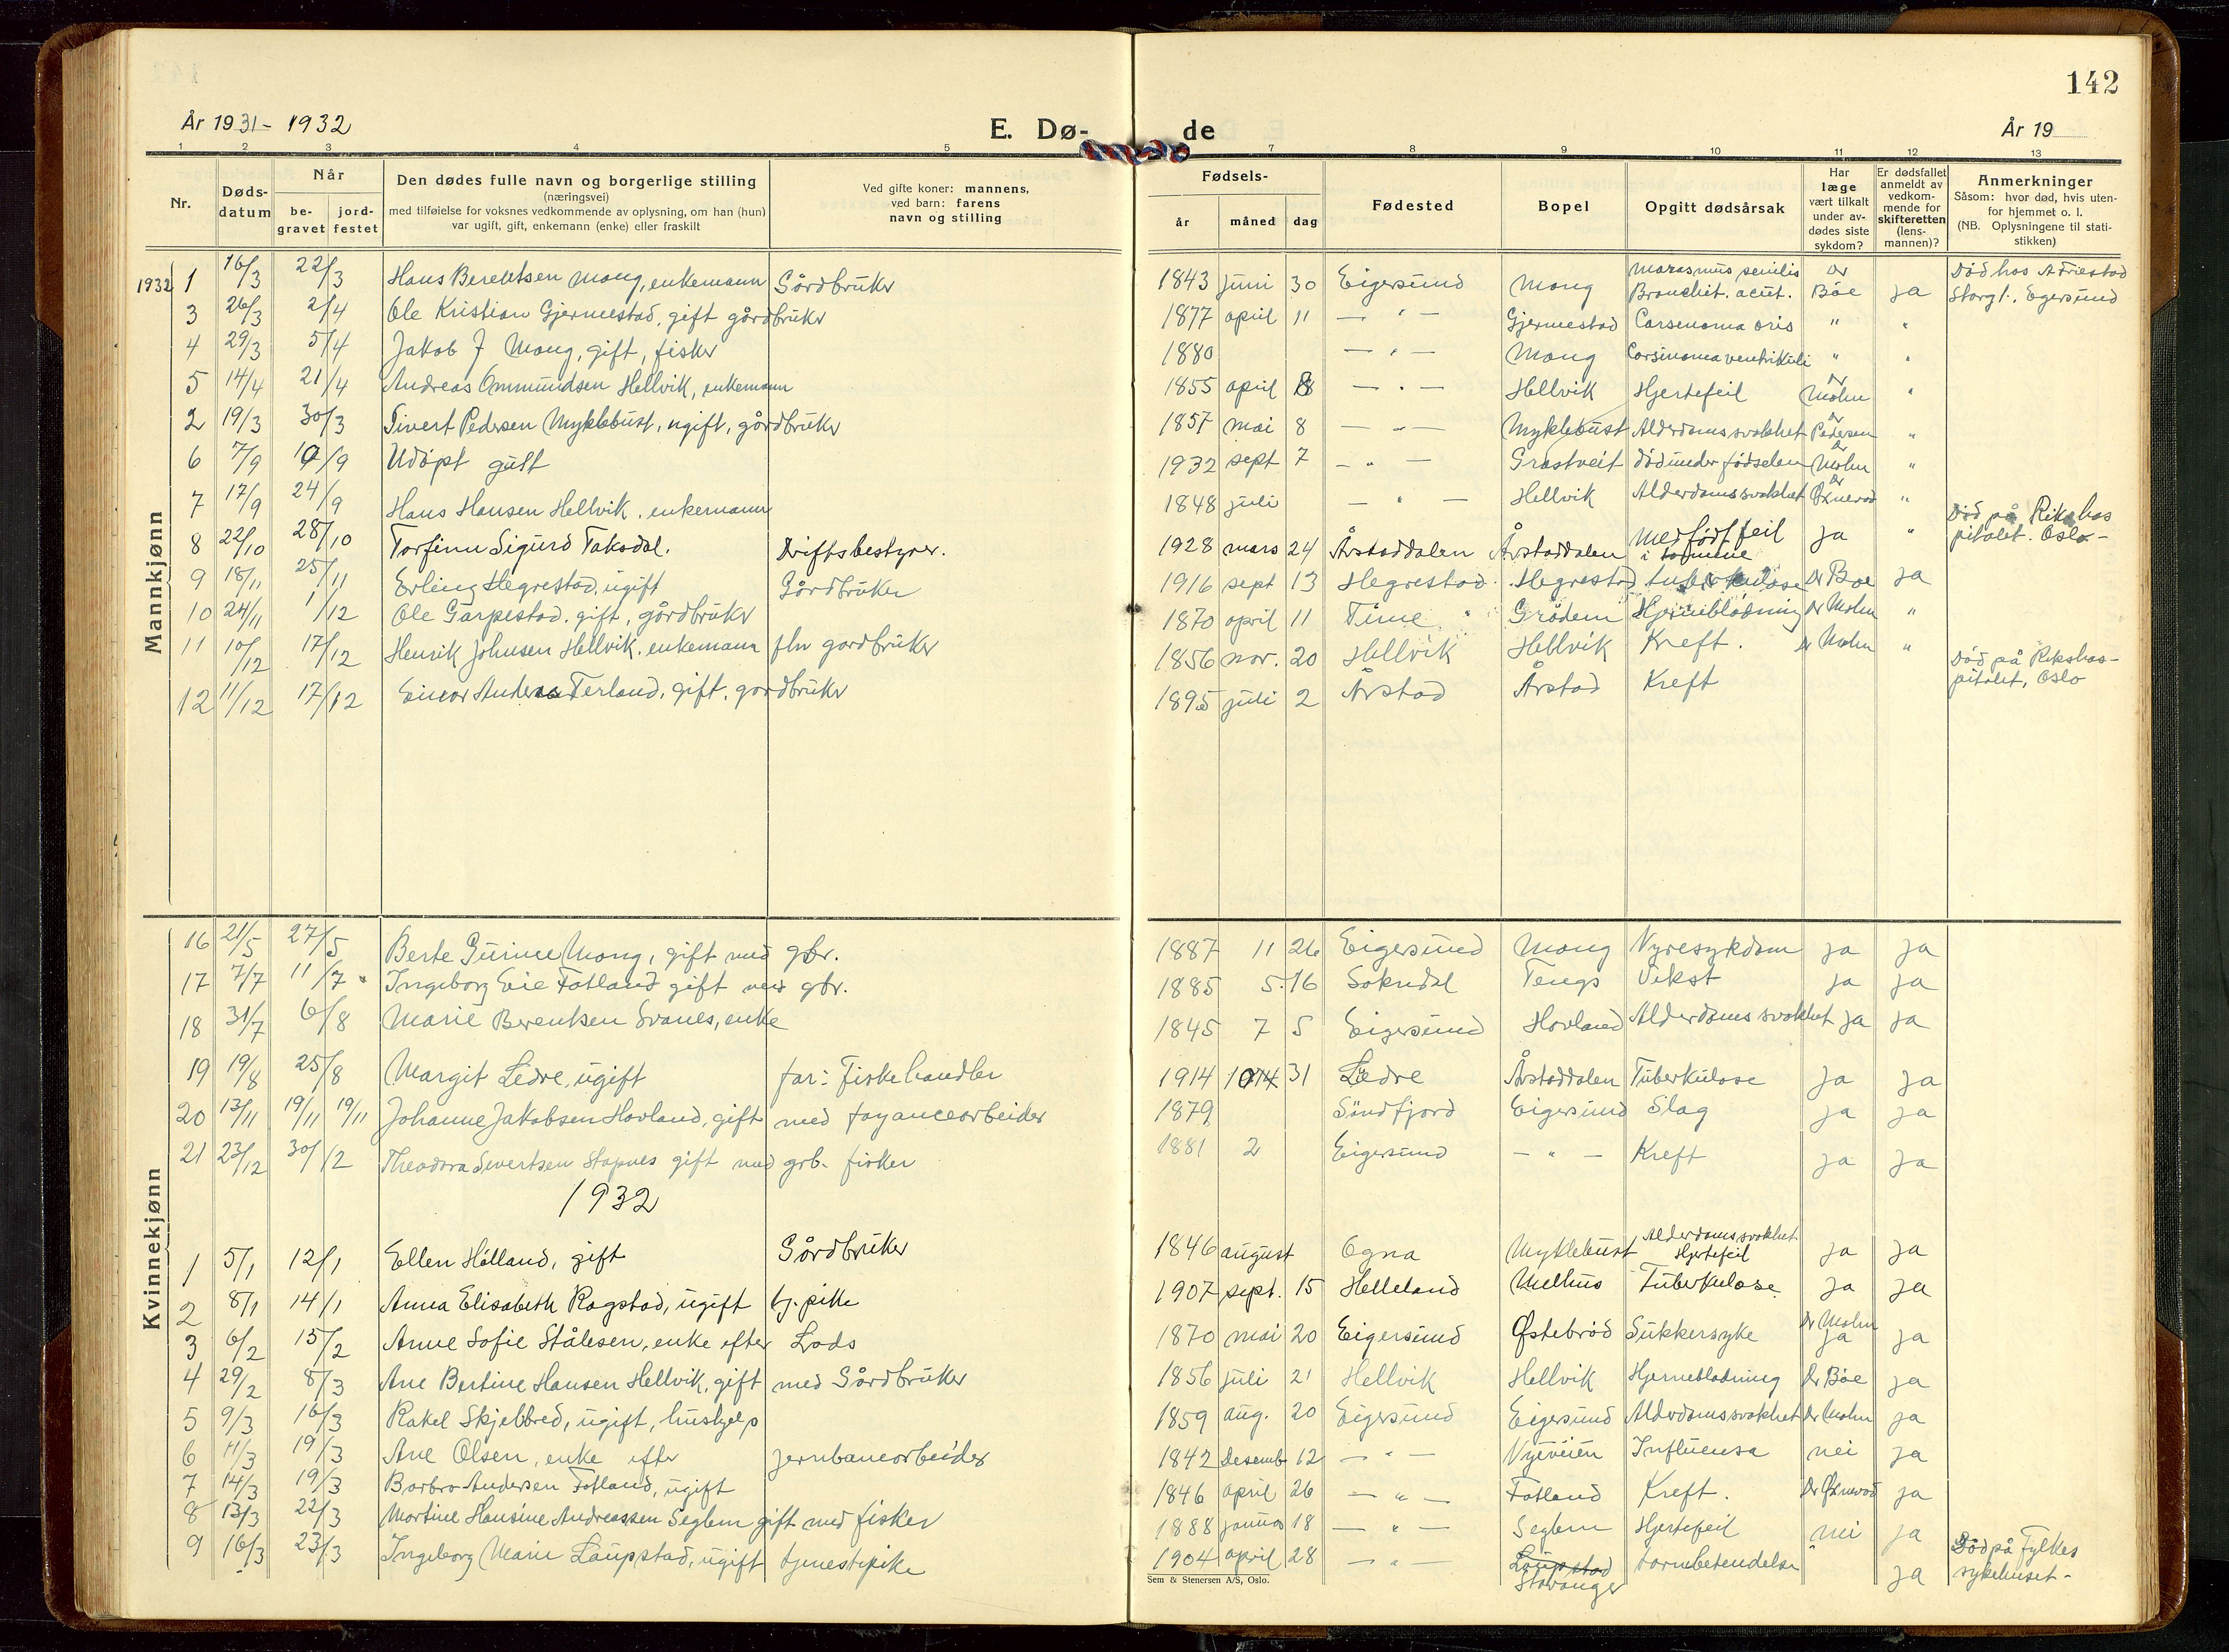 142
År 1931 - 1932
E. Dø-
de
År 19
1 2 3 4 5 7 8 9 10 11 12 13
Nr.
Døds-
datum
Når
be-
gravet
jord-
festet
Den dødes fulle navn og borgerlige stilling
(næringsvei)
med tilføielse for voksnes vedkommende av oplysning, om han (hun)
var ugift, gift, enkemann (enke) eller fraskilt
Ved gifte koner: mannens,
ved barn: farens
navn og stilling
Fødsels-
år måned dag
Fødested
Bopel
Opgitt dødsårsak
Har
læge
vært tilkalt
under av-
dødes siste
sykdom?
Er dødsfallet
anmeldt av
vedkom-
mende for
skifteretten
(lens-
mannen)?
Anmerkninger
Såsom: hvor død, hvis uten-
for hjemmet o. l.
(NB. Oplysningene til stati-
stikken)
Mannkjønn
1932 1 16/3 22/3 Hans Berentsen Mong, enkemann Gårdbruker 1843 juni 30 Eigersund Mong Marasmus senilis Bronchit. acut. Dr Bøe ja Død hos A Friestad Storgt., Egersund
3 26/3 2/4 Ole Kristian Gjermestad, gift gårdbruker 1877 april 11 — " — Gjermestad Carsenoma oris " "
4 29/3 5/4 Jakob J Mong, gift, fisker 1880 — " — Mong Carsinoma ventrikuli " "
5 14/4 21/4 Andreas Ommundsen Hellvik, enkemann 1855 april 8 — " — Hellvik Hjertefeil Dr Molm "
2 19/3 30/3 Sivert Pedersen Myklebust, ugift, gårdbruker 1857 mai 8 — " — Myklebust Alderdomssvakhet Dr Pedersen "
6 7/9 10/9 Udøpt gutt 1932 sept 7 — " — Grastveit Død under fødselen Dr Molm "
7 17/9 24/9 Hans Hansen Hellvik, enkemann 1848 juli — " — Hellvik Alderdomssvakhet Dr Øxnevad "
8 22/10 28/10 Torfinn Sigurd Taksdal. Driftsbestyrer. 1928 mars 24 Årstaddalen Årstaddalen Medfødt feil i tarmene ja " Død på Rikshospitalet. Oslo -
9 18/11 25/11 Erling Hegrestad, ugift Gårdbruker 1916 sept 13 Hegrestad Hegrestad tuberkulose Dr Bøe ja
10 24/11 1/12 Ole Garpestad, gift, gårdbruker 1870 april 11 Time Grødem Hjerneblødning Dr Molm "
11 10/12 17/12 Henrik Johnsen Hellvik, enkemann fhv gardbruker 1856 nov. 20 Hellvik Hellvik Kreft. Dr Molm "
12 11/12 17/12 Einar Andreas Terland, gift, gardbruker 1895 juli 2 Årstad Årstad Kreft Død på Rikshospitalet, Oslo
Kvinnekjønn
16 21/5 27/5 Berte Gurine Mong, gift med gbr. 1887 11 26 Eigersund Mong Nyresykdom ja ja
17 7/7 11/7 Ingeborg Eie Fotland gift med gbr. 1885 5 16 Sokndal Tengs Vekst ja ja
18 31/7 6/8 Marie Berentsen Svanes, enke 1845 7 5 Eigersund Hovland Alderdomssvakhet ja ja
19 19/8 25/8 Margit Ledre, ugift far: Fiskehandler 1914 10 31 Ledre Årstaddalen Tuberkulose ja ja
20 13/11 19/11 19/11 Johanne Jakobsen Hovland, gift med fayancearbeider 1879 Sundfjord Eigersund Slag ja ja
21 23/12 30/12 Theodora Sivertsen Stapnes gift med grb. fisker 1881 2 Eigersund — " — Kreft ja ja
1932
1 5/1 12/1 Ellen Hålland, gift Gårdbruker 1846 august Ogna Myklebust Alderdomssvakhet Hjertefeil ja ja
2 8/1 14/1 Anna Elisabeth Ragstad, ugift tj. pike 1907 sept. 15 Helleland Melhus Tuberkulose ja ja
3 6/2 15/2 Anne Sofie Stålesen, enke efter Lods 1870 mai 20 Eigersund Østebrød Sukkersyke Dr Molm ja ja
4 29/2 8/3 Ane Bertine Hansen Hellvik, gift med Gårdbruker 1856 juli 21 Hellvik Hellvik Hjerneblødning Dr Bøe ja
5 9/3 16/3 Rakel Skjelbred, ugift, hushjelp 1859 aug. 20 Eigersund Eigersund Alderdomssvakhet Dr Molm ja
6 11/3 19/3 Ane Olsen, enke efter jernbanearbeider 1842 desemb 12 — " — Nyeveien Influensa nei ja
7 14/3 19/3 Barbro Andersen Fotland, ugift 1846 april 26 — " — Fotland Kreft. Dr Øxnevad ja
8 13/3 22/3 Martine Hansine Andreassen Seglem gift med fisker 1888 januar 18 — " — Seglem Hjertefeil nei ja
9 16/3 23/3 Ingeborg Marie Laupstad, ugift tjenestepike 1904 april 28 — " — Laupstad Stavanger tarmbetendelse " ja Død på Fylkes sykehuset -
Sem & Stenersen A/S, Oslo.